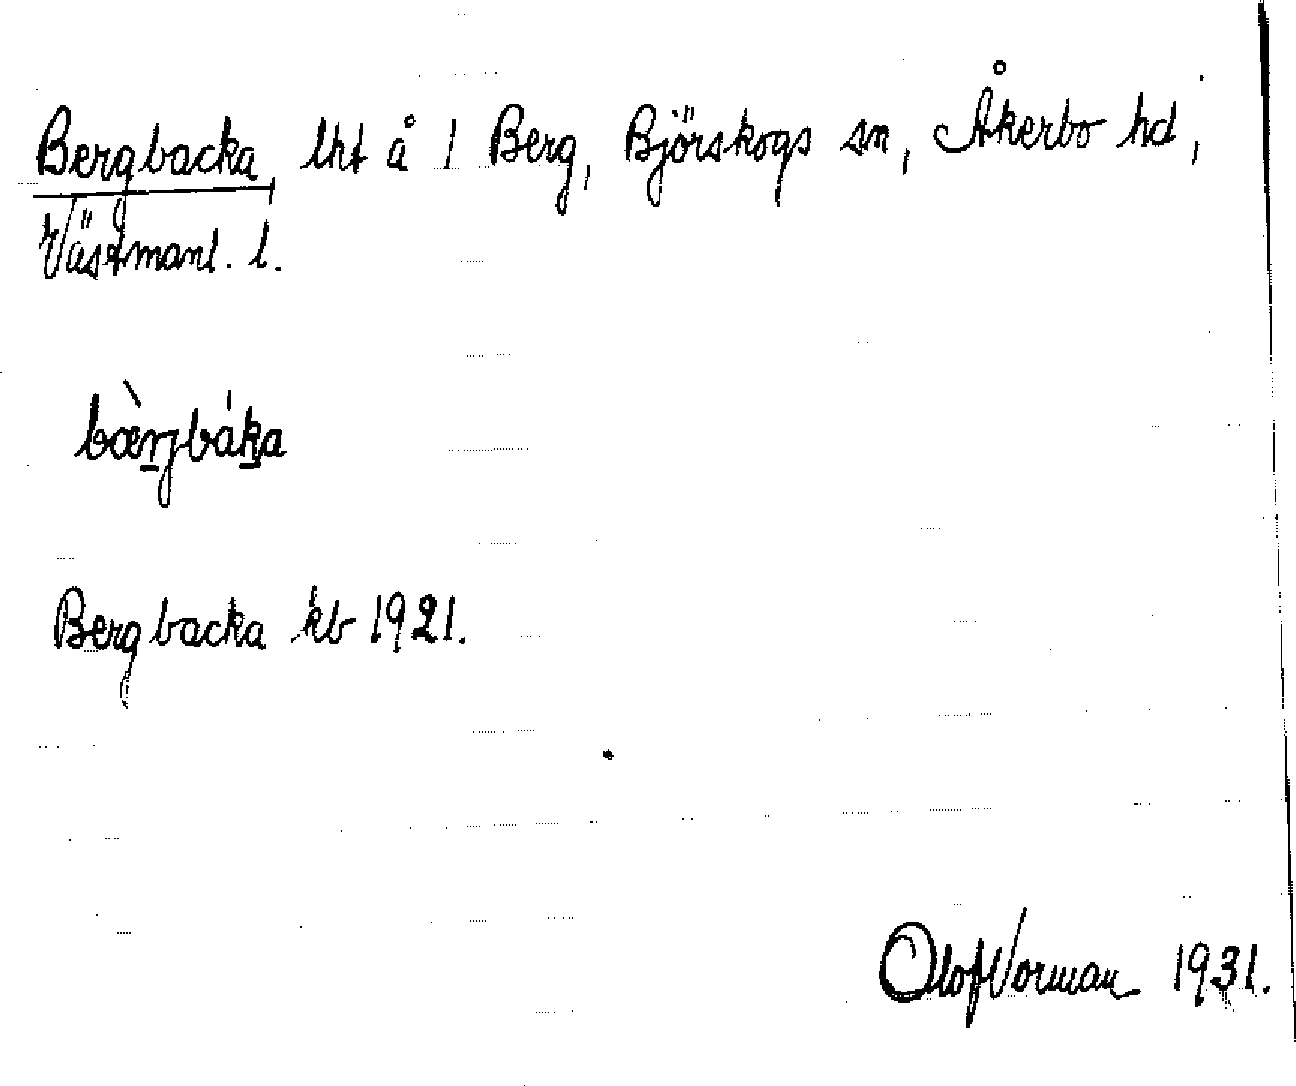 Bergbacka, lht å 1 Berg, Björskogs sn, Åkerbo hd,
Västmanl. l.
bæ̀rjbáka
Bergbacka kb 1921.
Olof Vorman 1931.